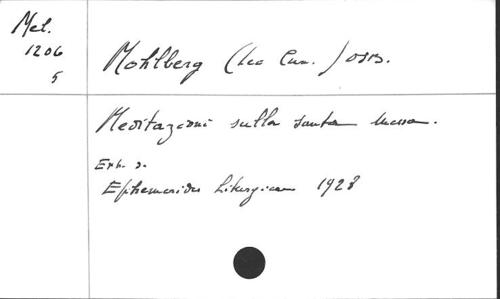 Mel.
1206
5
Mohlberg (Leo Cun.) OSB.
Meditazioni sulla santa Messa.
Extr. d.
Ephemerides Liturgicae 1928